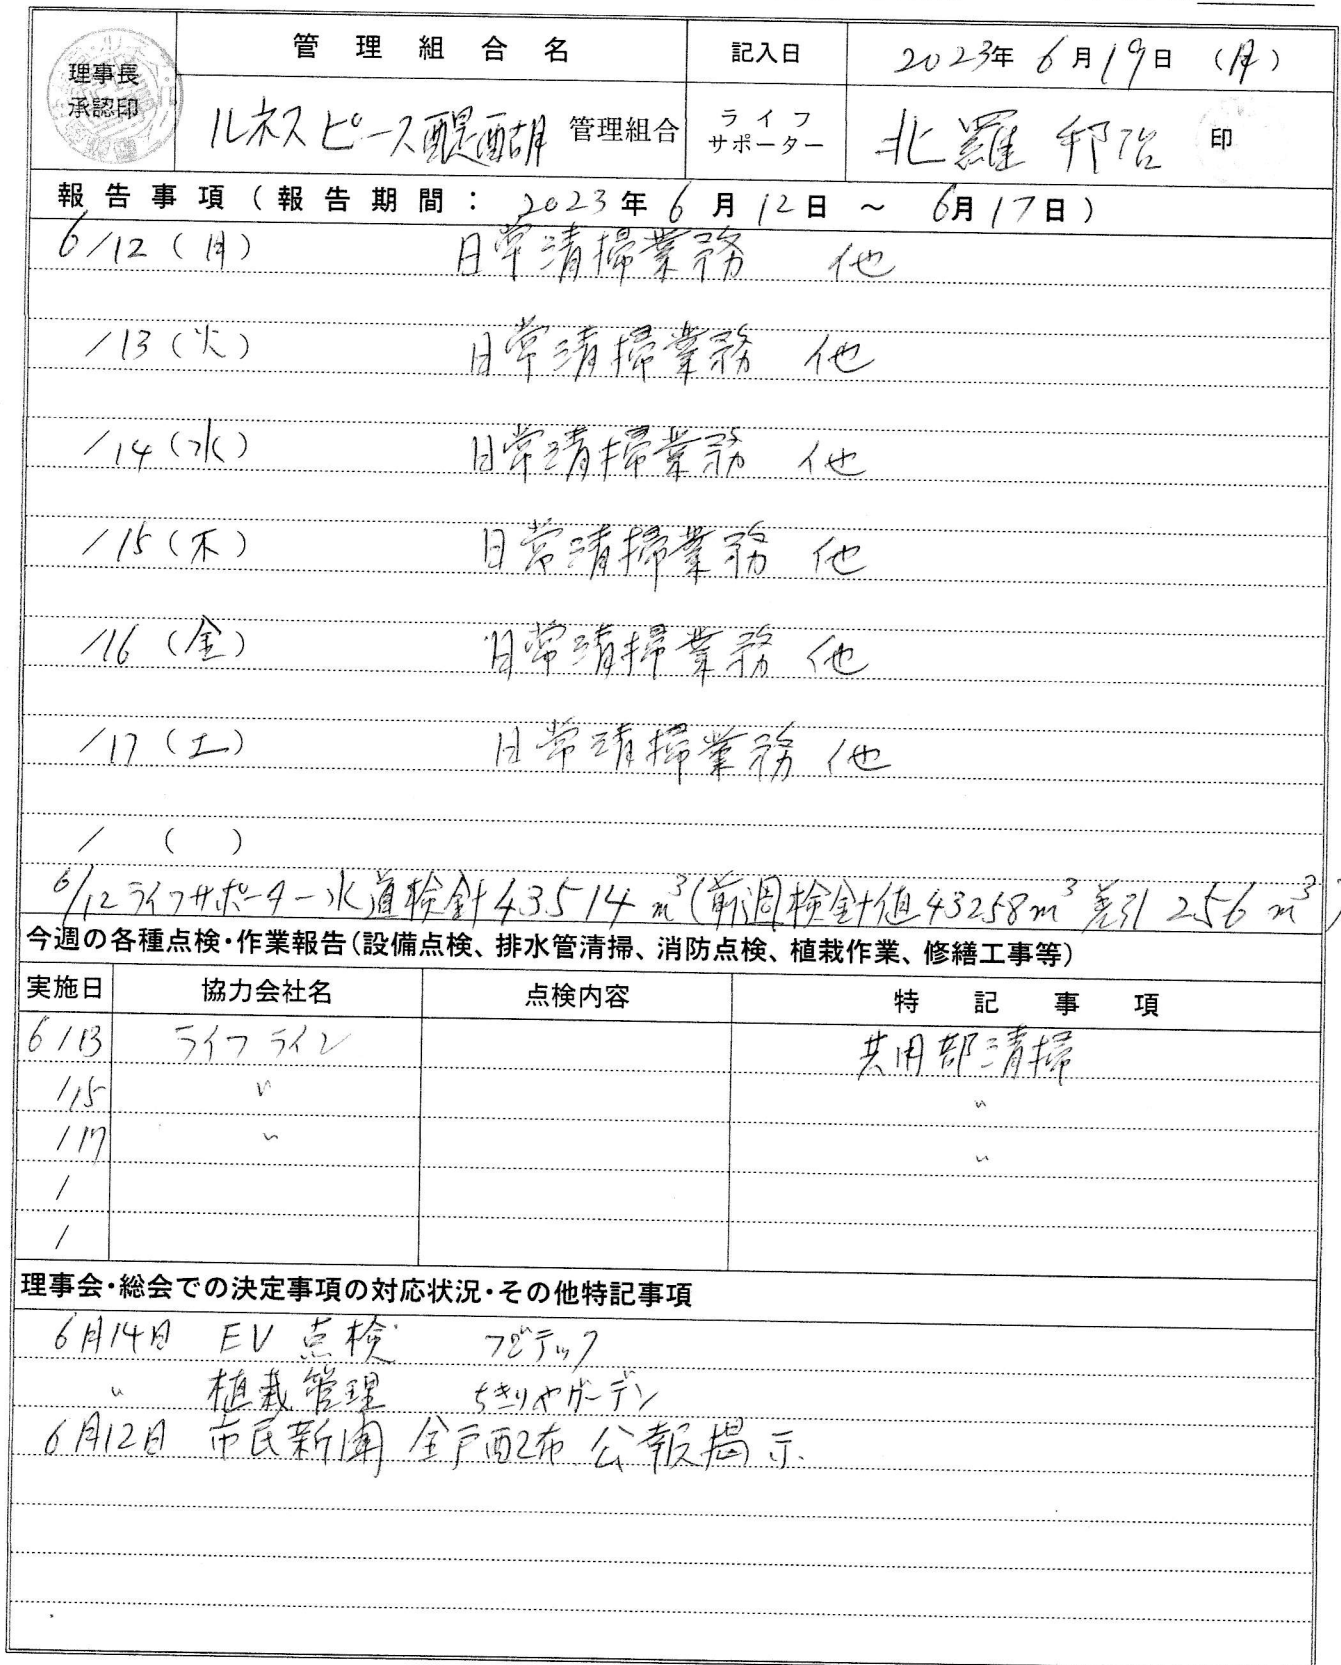 管理組合名 記入日 2023年 6月19日 (月)
理事長
承認印
ルネスピース醍醐 管理組合 ライフ
サポーター 北羅 邦治 印
報告事項(報告期間: 2023年 6月12日 ~ 6月17日)
6/12 (月) 日常清掃業務 他
/13 (火) 日常清掃業務 他
/14 (水) 日常清掃業務 他
/15 (木) 日常清掃業務 他
/16 (金) 日常清掃業務 他
/17 (土) 日常清掃業務 他
/ ( )
6/12 ライフサポーター水道検針 43514 m³(前週検針値 43258m³ 差引 256 m³)
今週の各種点検・作業報告(設備点検、排水管清掃、消防点検、植栽作業、修繕工事等)
実施日 協力会社名 点検内容 特記事項
6/13 ライフライン 共用部清掃
/15 〃 〃
/17 〃 〃
/
/
理事会・総会での決定事項の対応状況・その他特記事項
6月14日 EV 点検 フジテック
〃 植栽管理 ちきりやガーデン
6月12日 市民新聞 全戸配布、公報掲示、